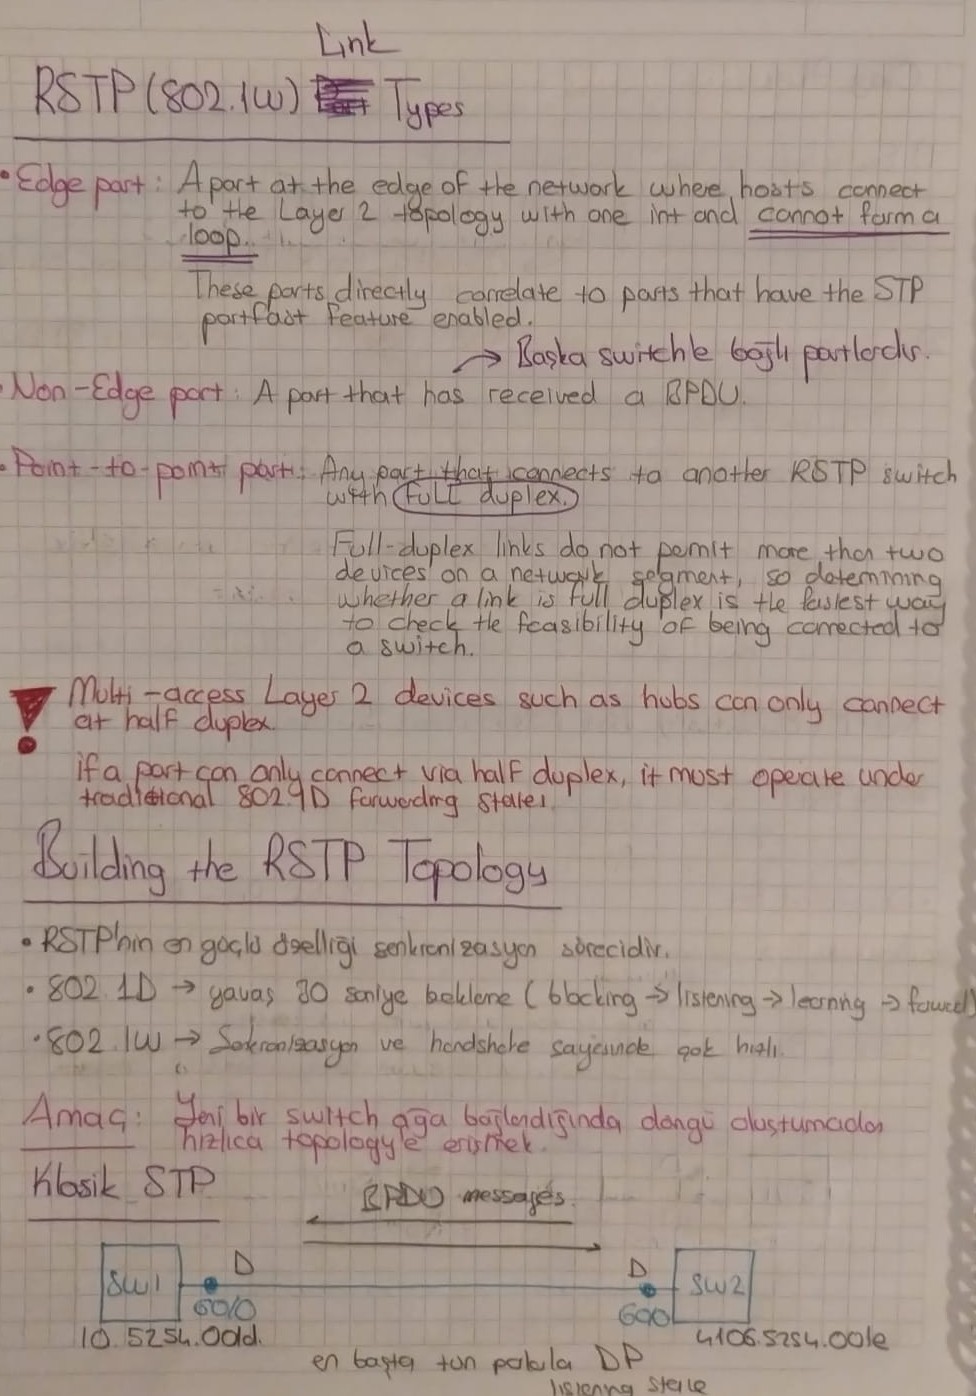 Link
RSTP (802.1W) Types
• Edge port: A port at the edge of the network where hosts connect
to the Layer 2 topology with one int and cannot form a
loop.
These ports directly correlate to ports that have the STP
portfast feature enabled.
→ Başka switchle bağlı portlardır.
• Non-Edge port: A port that has received a BPDU.
• Point-to-point port: Any port that connects to another RSTP switch
with full duplex.
Full-duplex links do not permit more than two
devices on a network segment, so determining
whether a link is full duplex is the fastest way
to check the feasibility of being connected to
a switch.
! Multi-access Layer 2 devices such as hubs can only connect
at half duplex.
if a port can only connect via half duplex, it must operate under
traditional 802.1D forwarding states.
Building the RSTP Topology
• RSTP'nin en güçlü özelliği senkronizasyon sürecidir.
• 802.1D → yavaş 30 saniye bekleme (blocking → listening → learning → forward)
• 802.1W → Sekronizasyon ve handshake sayesinde çok hızlı.
Amaç: Yeni bir switch ağa bağlandığında döngü oluşturmadan
hızlıca topology'e erişmek.
Klasik STP
BPDU messages.
D D
SW1 SW2
G0/0
10.5254.00dd. 4106.5254.001e
en başta tün DP
listening state